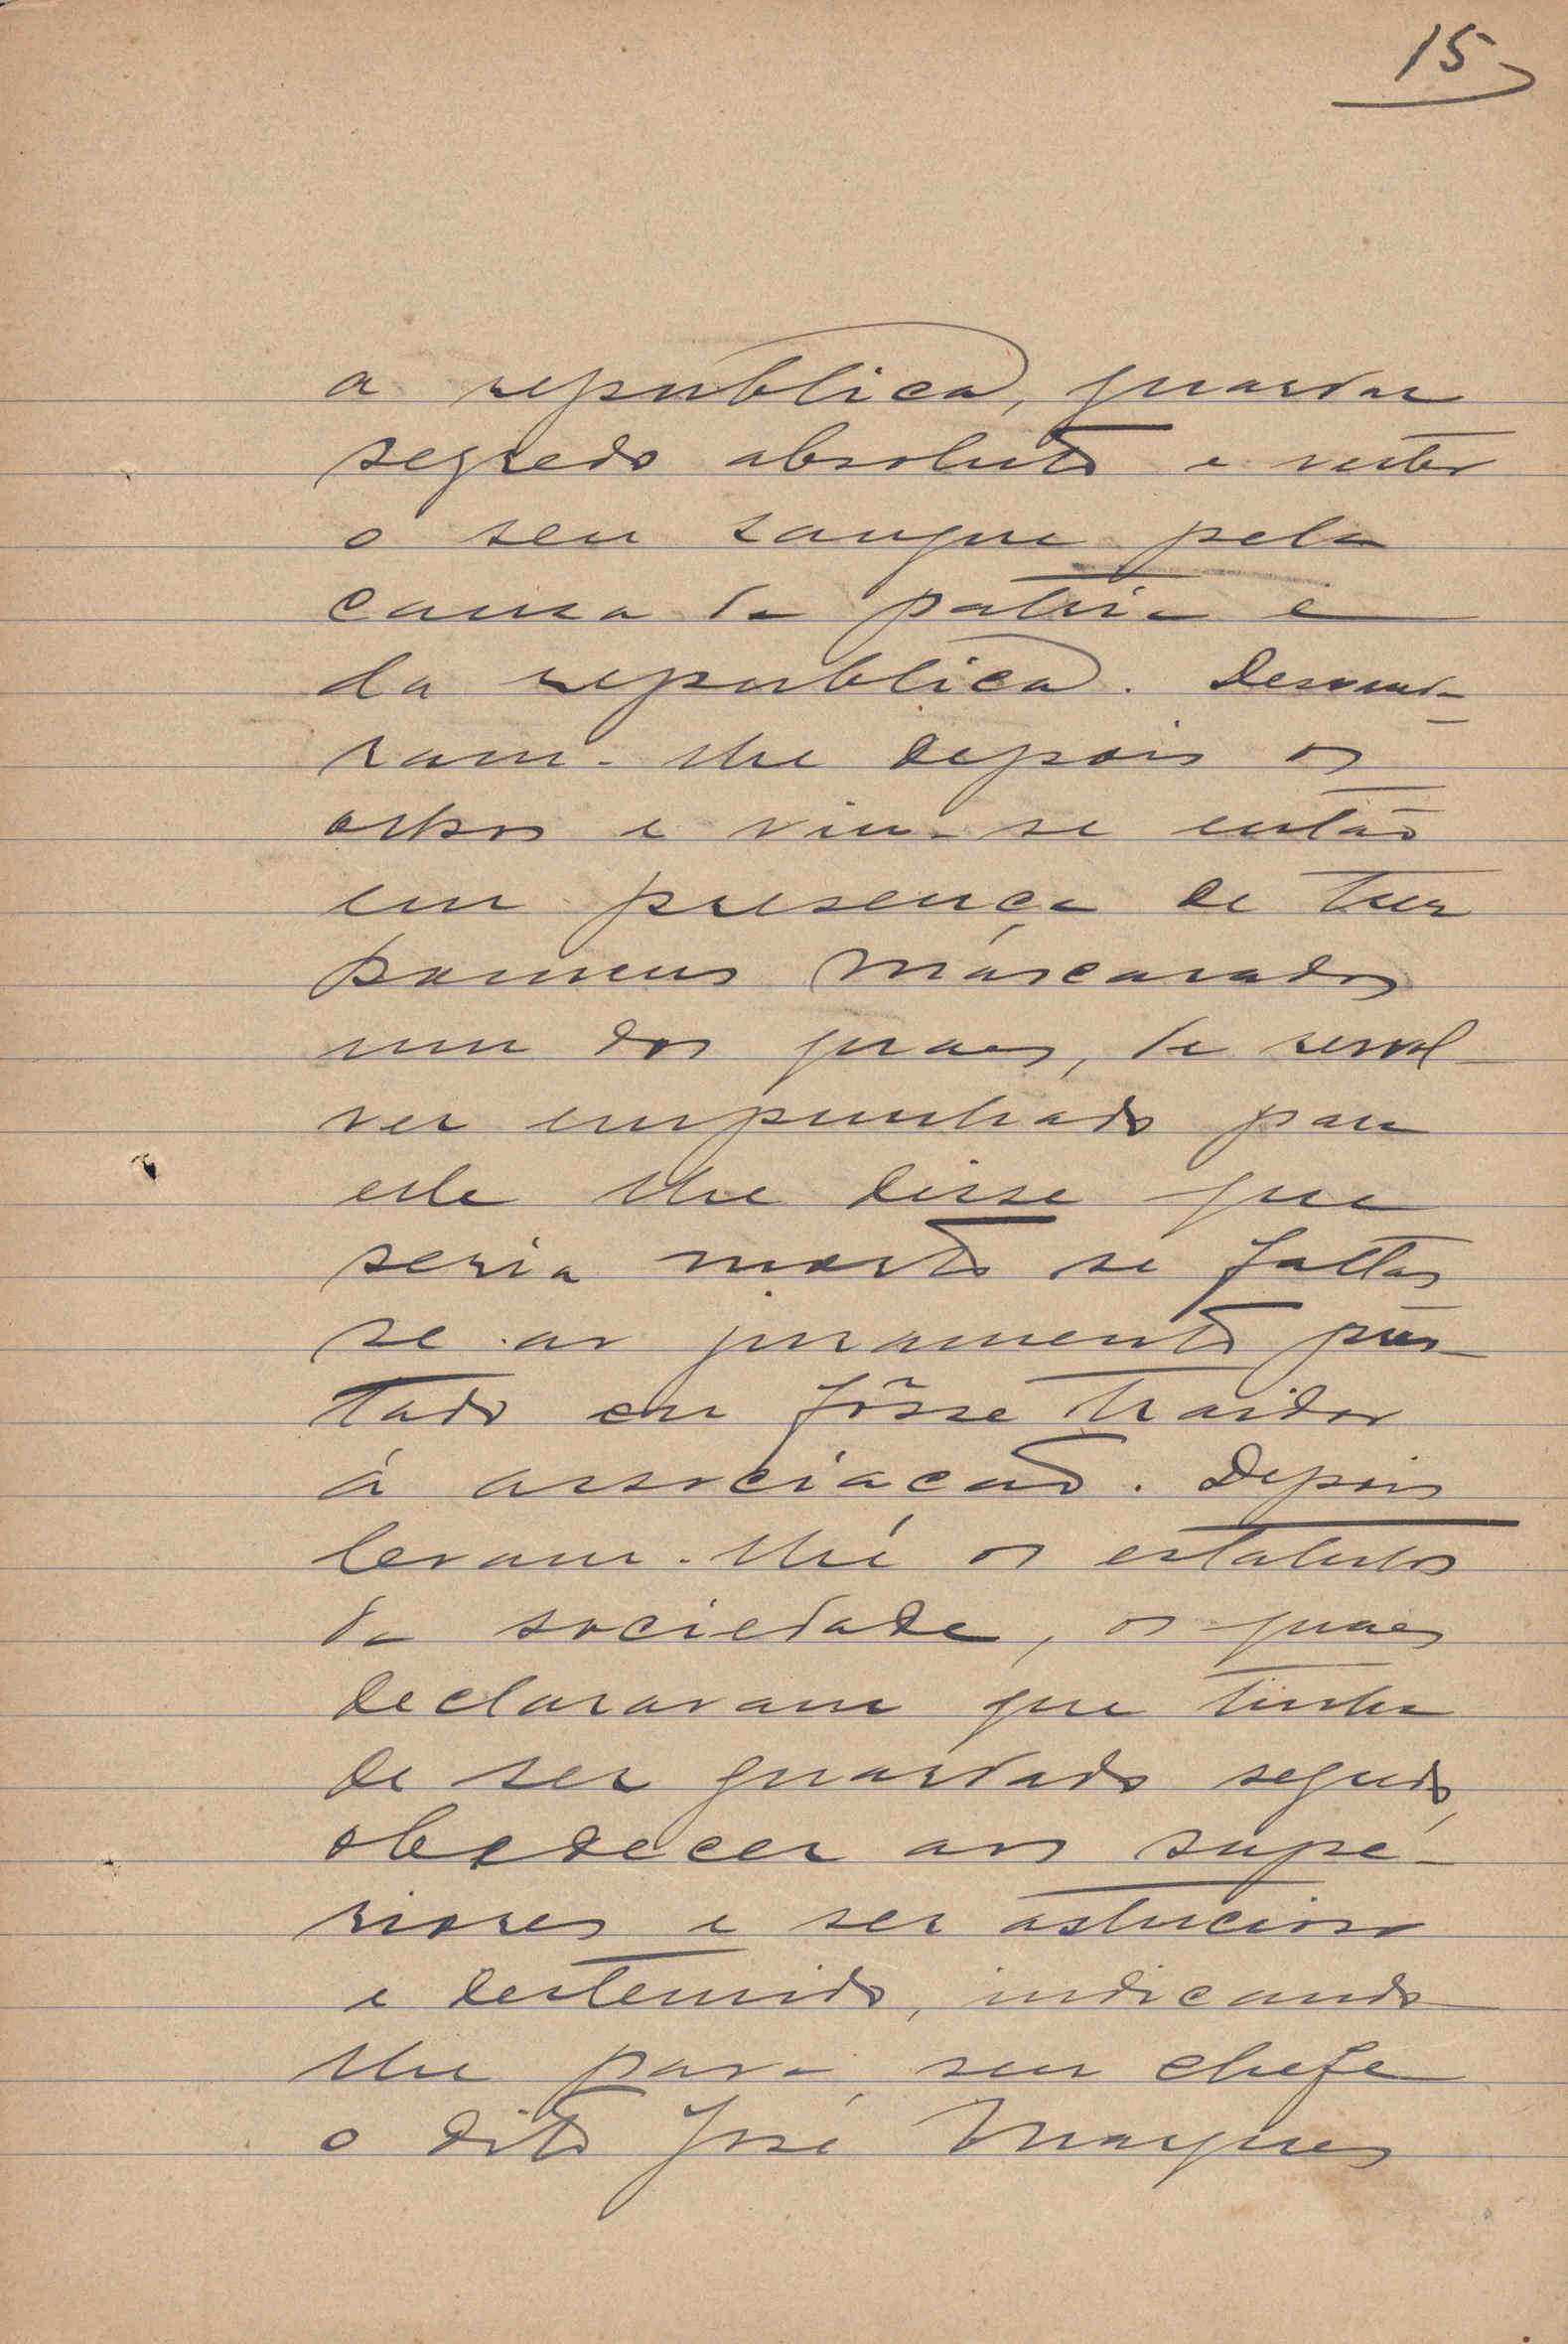 15
a republica, guardar
segredo absoluto e verter
o seu sangue pela
causa da patria e
da republica. Desvenda-
ram-lhe depois os
olhos e viu-se então
em presença de tres
homens máscarados
um dos quaes, de revol-
ver empunhado para
ele lhe disse que
seria morto se faltas
se ao juramento pres-
tado ou fôsse traidor
á associacao. Depois
leram-lhe os estatutos
da sociedade, os quaes
declaravam que tinha
de ser guardado segredo,
obedecer aos supe-
riores e ser astucioso
e destemido, indicando
lhe para seu chefe
o dito José Marques